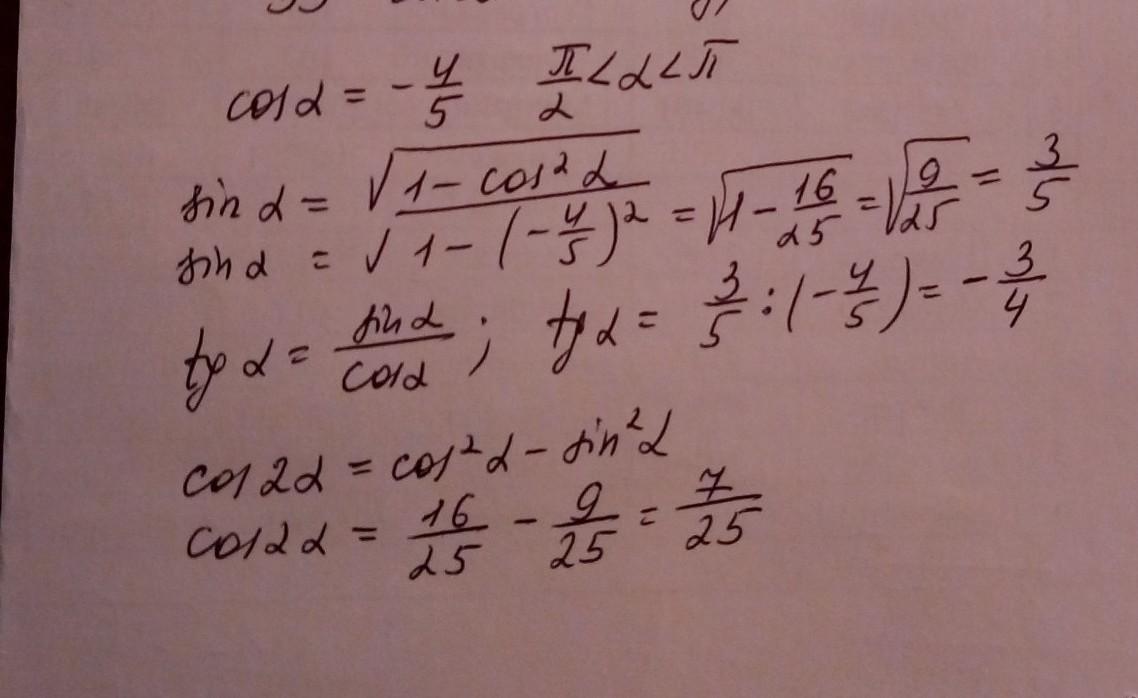 cos α = -4/5   π/2 < α < π
sin α = √(1 - cos² α)
sin α = √(1 - (-4/5)²) = √(1 - 16/25) = √(9/25) = 3/5
tg α = sin α / cos α ; tg α = 3/5 : (-4/5) = -3/4
cos 2α = cos² α - sin² α
cos 2α = 16/25 - 9/25 = 7/25